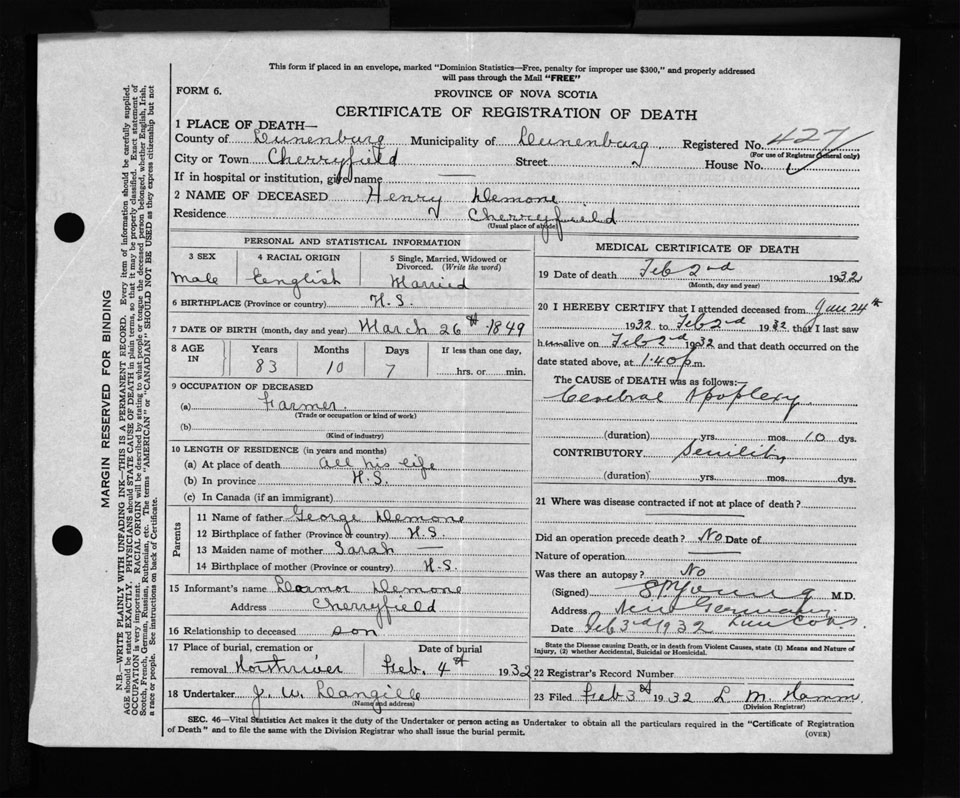 This form if placed in an envelope, marked "Dominion Statistics—Free, penalty for improper use $300," and properly addressed
will pass through the Mail "FREE"
FORM 6.
PROVINCE OF NOVA SCOTIA
CERTIFICATE OF REGISTRATION OF DEATH
1 PLACE OF DEATH—
County of Lunenburg Municipality of Lunenburg Registered No. 427
(For use of Registrar General only)
City or Town Cherryfield Street House No.
If in hospital or institution, give name —
2 NAME OF DECEASED Henry Demone
Residence Cherryfield
(Usual place of abode)
PERSONAL AND STATISTICAL INFORMATION
3 SEX 4 RACIAL ORIGIN 5 Single, Married, Widowed or Divorced. (Write the word)
Male English Married
6 BIRTHPLACE (Province or country) N.S.
7 DATE OF BIRTH (month, day and year) March 26th 1849
8 AGE IN Years Months Days If less than one day,
83 10 7 hrs. or min.
9 OCCUPATION OF DECEASED
(a) Farmer
(Trade or occupation or kind of work)
(b)
(Kind of industry)
10 LENGTH OF RESIDENCE (in years and months)
(a) At place of death all his life
(b) In province N.S.
(c) In Canada (if an immigrant)
Parents
11 Name of father George Demone
12 Birthplace of father (Province or country) N.S.
13 Maiden name of mother Sarah —
14 Birthplace of mother (Province or country) N.S.
15 Informant's name Demone
Address Cherryfield
16 Relationship to deceased son
17 Place of burial, cremation or Date of burial
removal Northriver Feb. 4th 1932
18 Undertaker J. W. Langille
(Name and address)
MEDICAL CERTIFICATE OF DEATH
19 Date of death Feb 2nd 1932
(Month, day and year)
20 I HEREBY CERTIFY that I attended deceased from Jan 24th
1932 to Feb 2nd 1932, that I last saw
him alive on Feb 2nd 1932 and that death occurred on the
date stated above, at 1.40 p.m.
The CAUSE OF DEATH was as follows:
Cerebral Apoplexy
(duration) yrs. mos. 10 dys.
CONTRIBUTORY Senility
(duration) yrs. mos. dys.
21 Where was disease contracted if not at place of death?
Did an operation precede death? No Date of
Nature of operation
Was there an autopsy? No
(Signed) Young M.D.
Address New Germany
Date Feb 3rd 1932 Lun Co NS
State the Disease causing Death, or in death from Violent Causes, state (1) Means and Nature of
Injury, (2) whether Accidental, Suicidal or Homicidal.
22 Registrar's Record Number
23 Filed Feb 3rd 1932 L M Hamm
(Division Registrar)
SEC. 46—Vital Statistics Act makes it the duty of the Undertaker or person acting as Undertaker to obtain all the particulars required in the "Certificate of Registration
of Death" and to file the same with the Division Registrar who shall issue the burial permit.
(OVER)
MARGIN RESERVED FOR BINDING
N.B.—WRITE PLAINLY WITH UNFADING INK—THIS IS A PERMANENT RECORD. Every item of information should be carefully supplied.
AGE should be stated EXACTLY. PHYSICIANS should STATE CAUSE OF DEATH in plain terms, so that it may be properly classified. Exact statement of
OCCUPATION is very important. RACIAL ORIGIN will be described by stating to what people or tongue the deceased person belonged, whether English, Irish,
Scotch, French, German, Russian, Ruthenian, etc. The terms "AMERICAN" or "CANADIAN" SHOULD NOT BE USED as they express citizenship but not
a race or people. See instructions on back of Certificate.